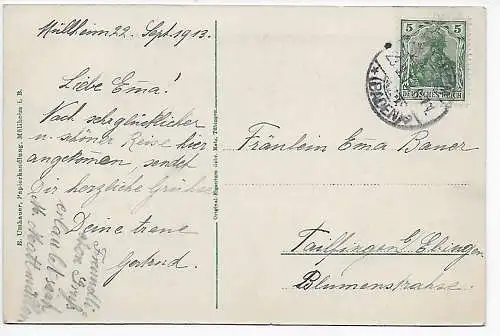 Müllheim 22. Sept. 1913.
Liebe Emma!
Nach sehr glücklicher
u. schöner Reise hier
angekommen, sendet
Dir herzliche Grüße
Deine treue
Gertrud.
Freundl.
Gruß
erlaubt sich
Fräulein Emma Bauer
Tailfingen b/ Ebingen
Blumenstrasse.
5 5
DEUTSCHES REICH
(BADEN)
E. Umhauer, Papierhandlung, Müllheim i. B.
Original-Eigentum Gebr. Metz, Tübingen.